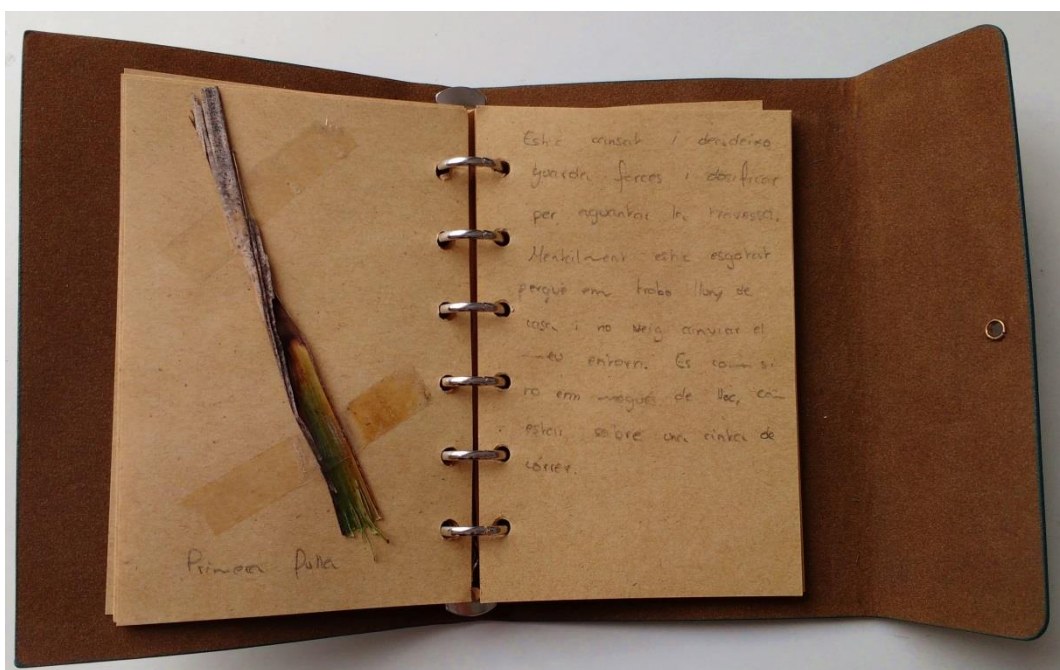 Primera fulla
Estic cansat i decideixo
guardar forces i dosificar
per aguantar la travessa.
Mentalment estic esgotat
perquè em trobo lluny de
casa i no veig canviar el
meu entorn. Es com si
no em mogués de lloc, com
estar sobre una cinta de
córrer.